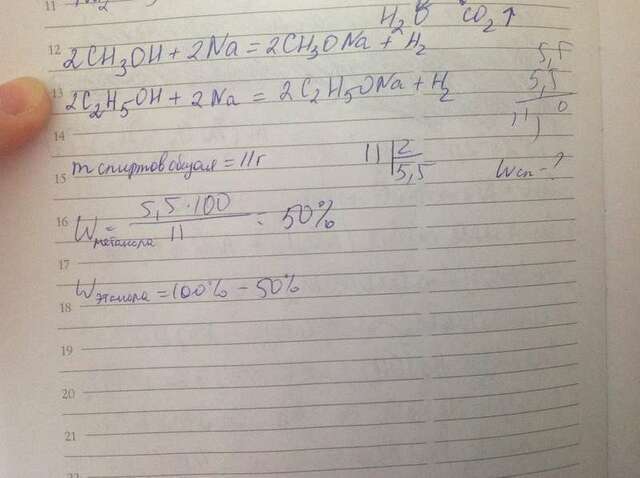 11
H₂O CO₂↑
12 2CH₃OH + 2Na = 2CH₃ONa + H₂
13 2C₂H₅OH + 2Na = 2C₂H₅ONa + H₂
5,5
5,5
11 0
14
m спиртов общая = 11г
11 2
5,5
Wсп - ?
15
16 Wметанола = 5,5 · 100
11
= 50%
17
Wэтанола = 100% - 50%
18
19
20
21
22